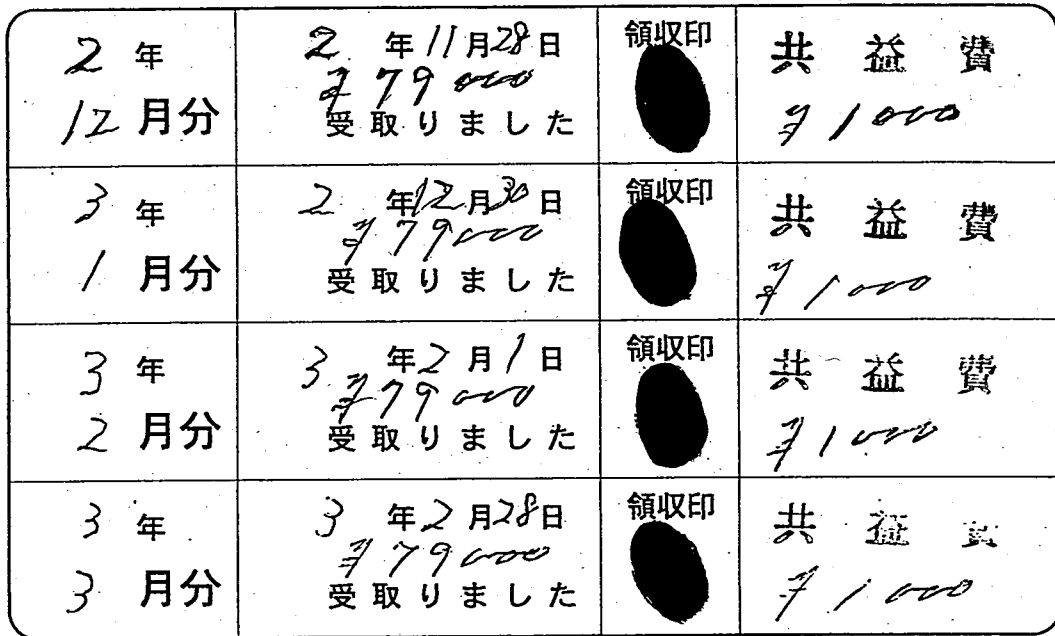 2 年
12 月分
2 年 11 月 28 日
¥79000
受取りました
領収印
共益費
¥1000
3 年
1 月分
2 年 12 月 30 日
¥79000
受取りました
領収印
共益費
¥1000
3 年
2 月分
3 年 2 月 1 日
¥79000
受取りました
領収印
共益費
¥1000
3 年
3 月分
3 年 2 月 28 日
¥79000
受取りました
領収印
共益費
¥1000